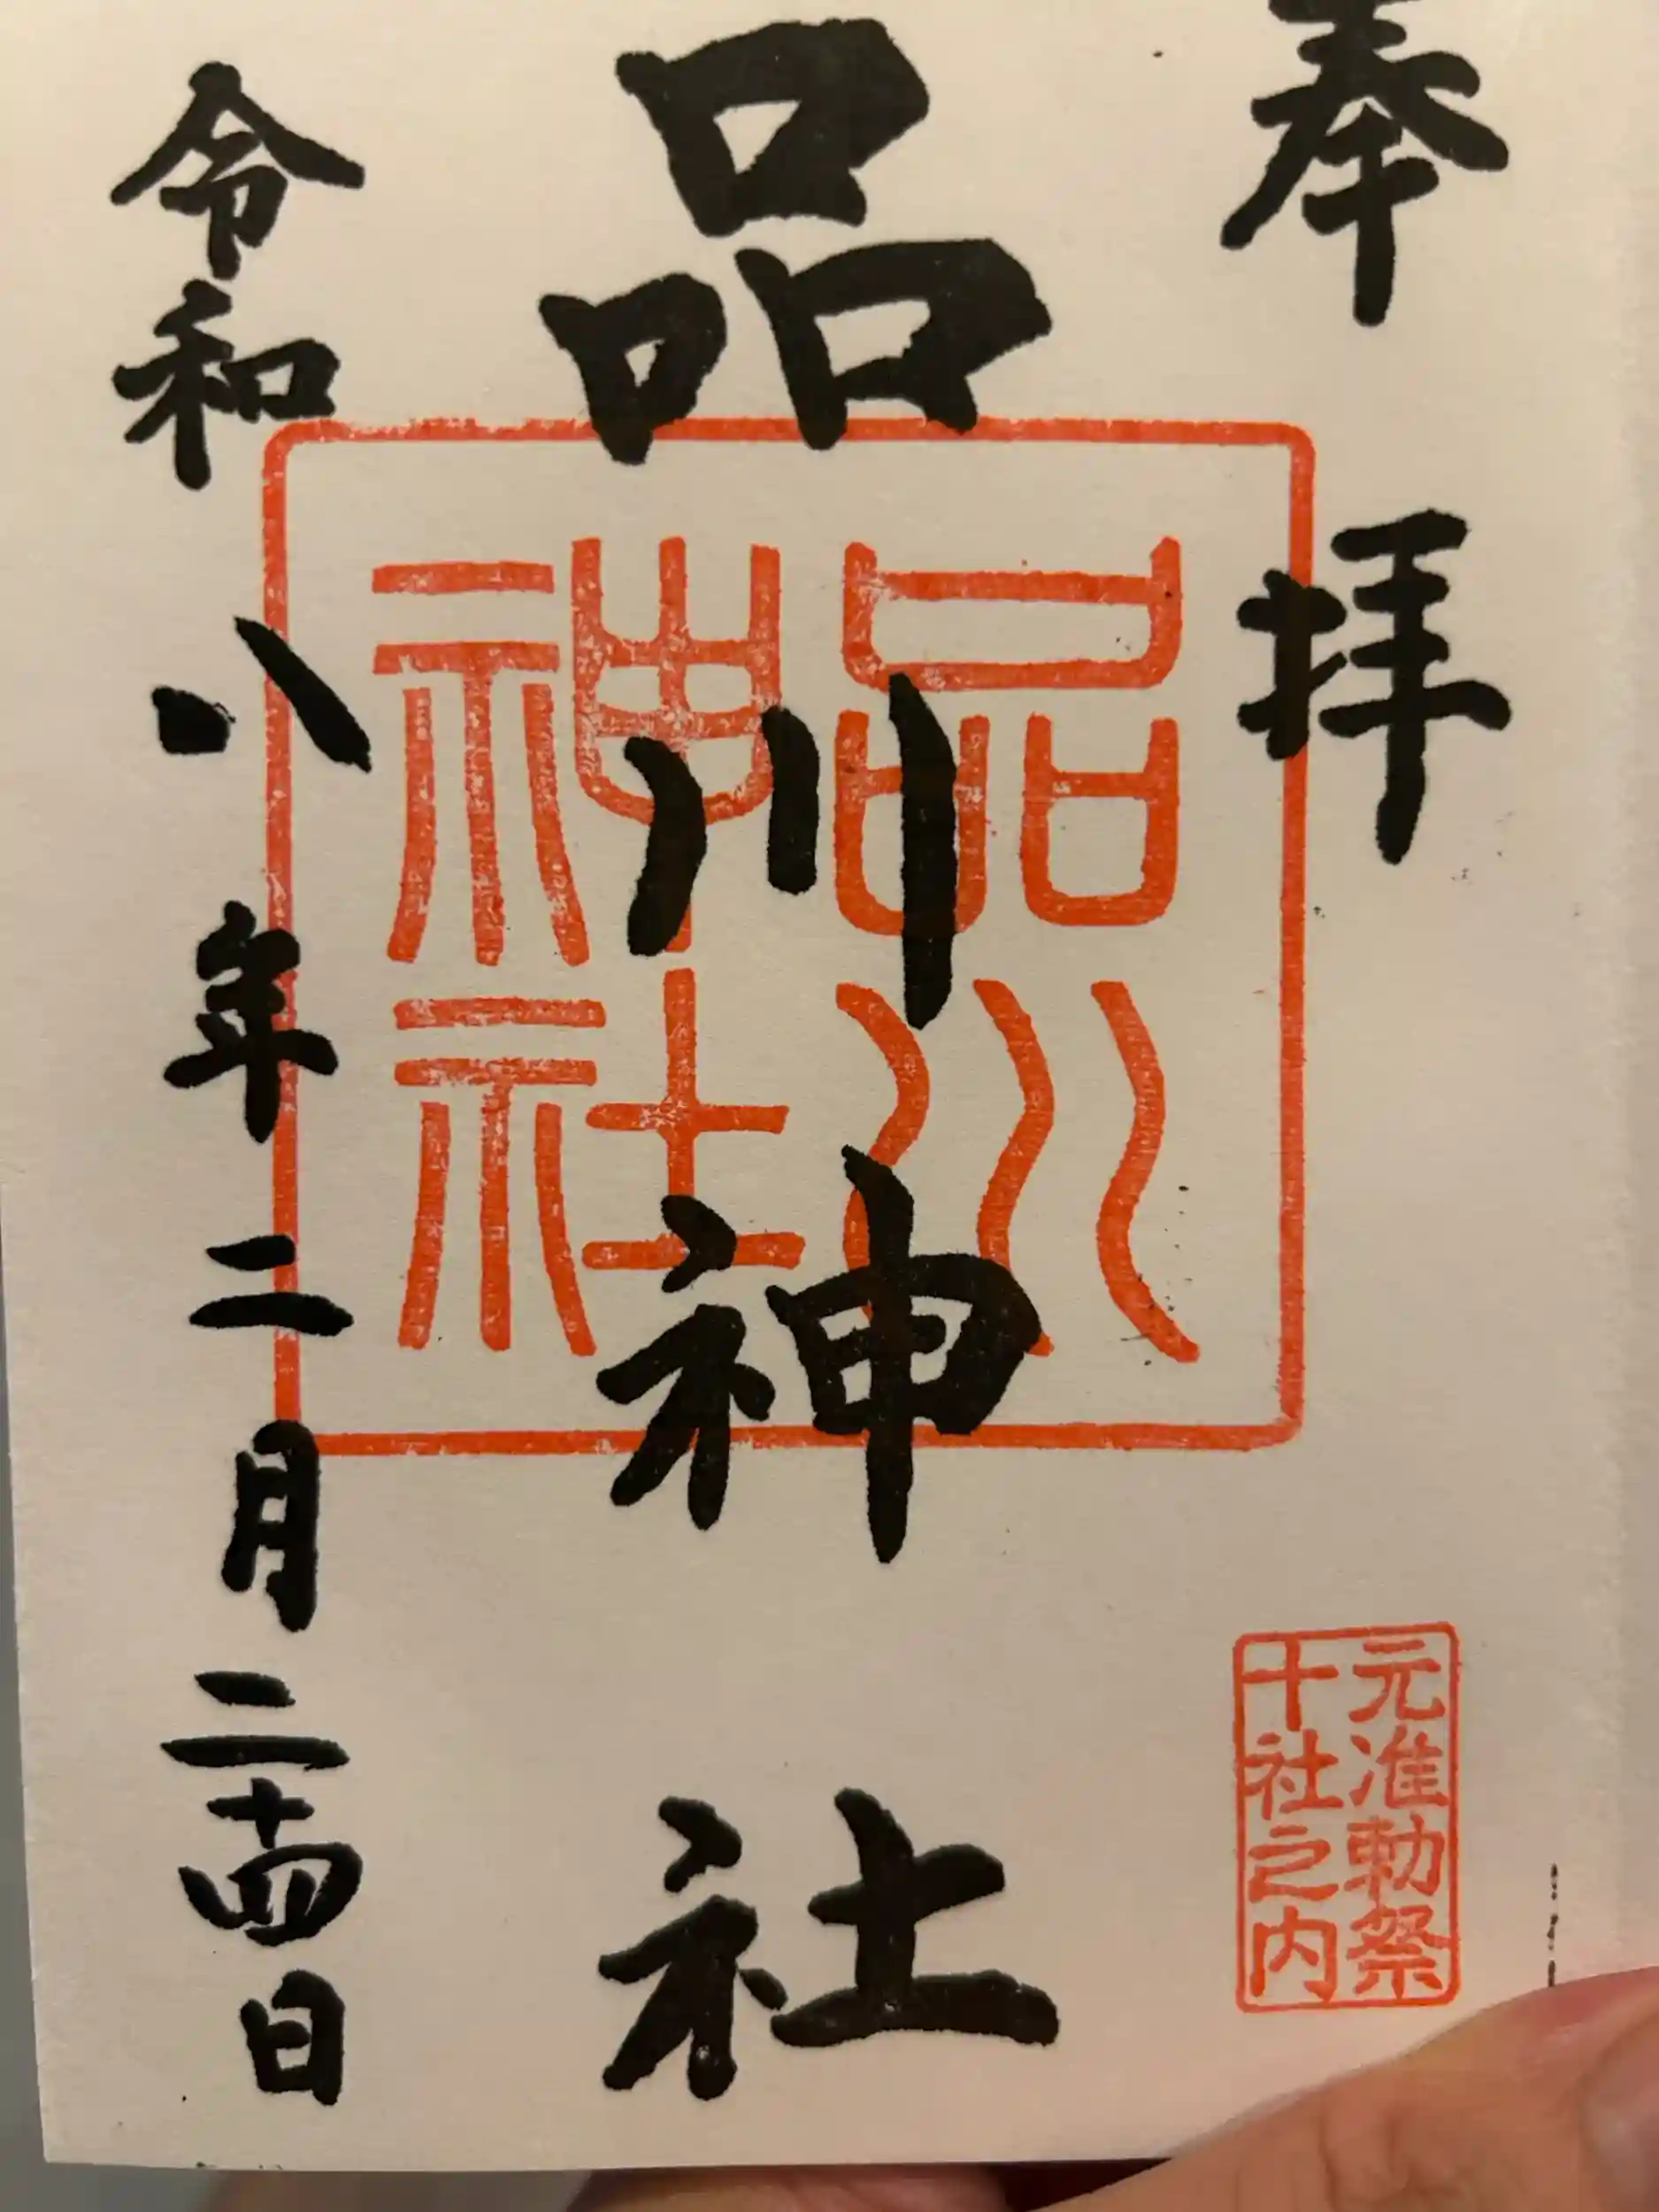 奉拝
品川神社
品川
神社
元准勅祭
十社之内
令和八年二月二十四日